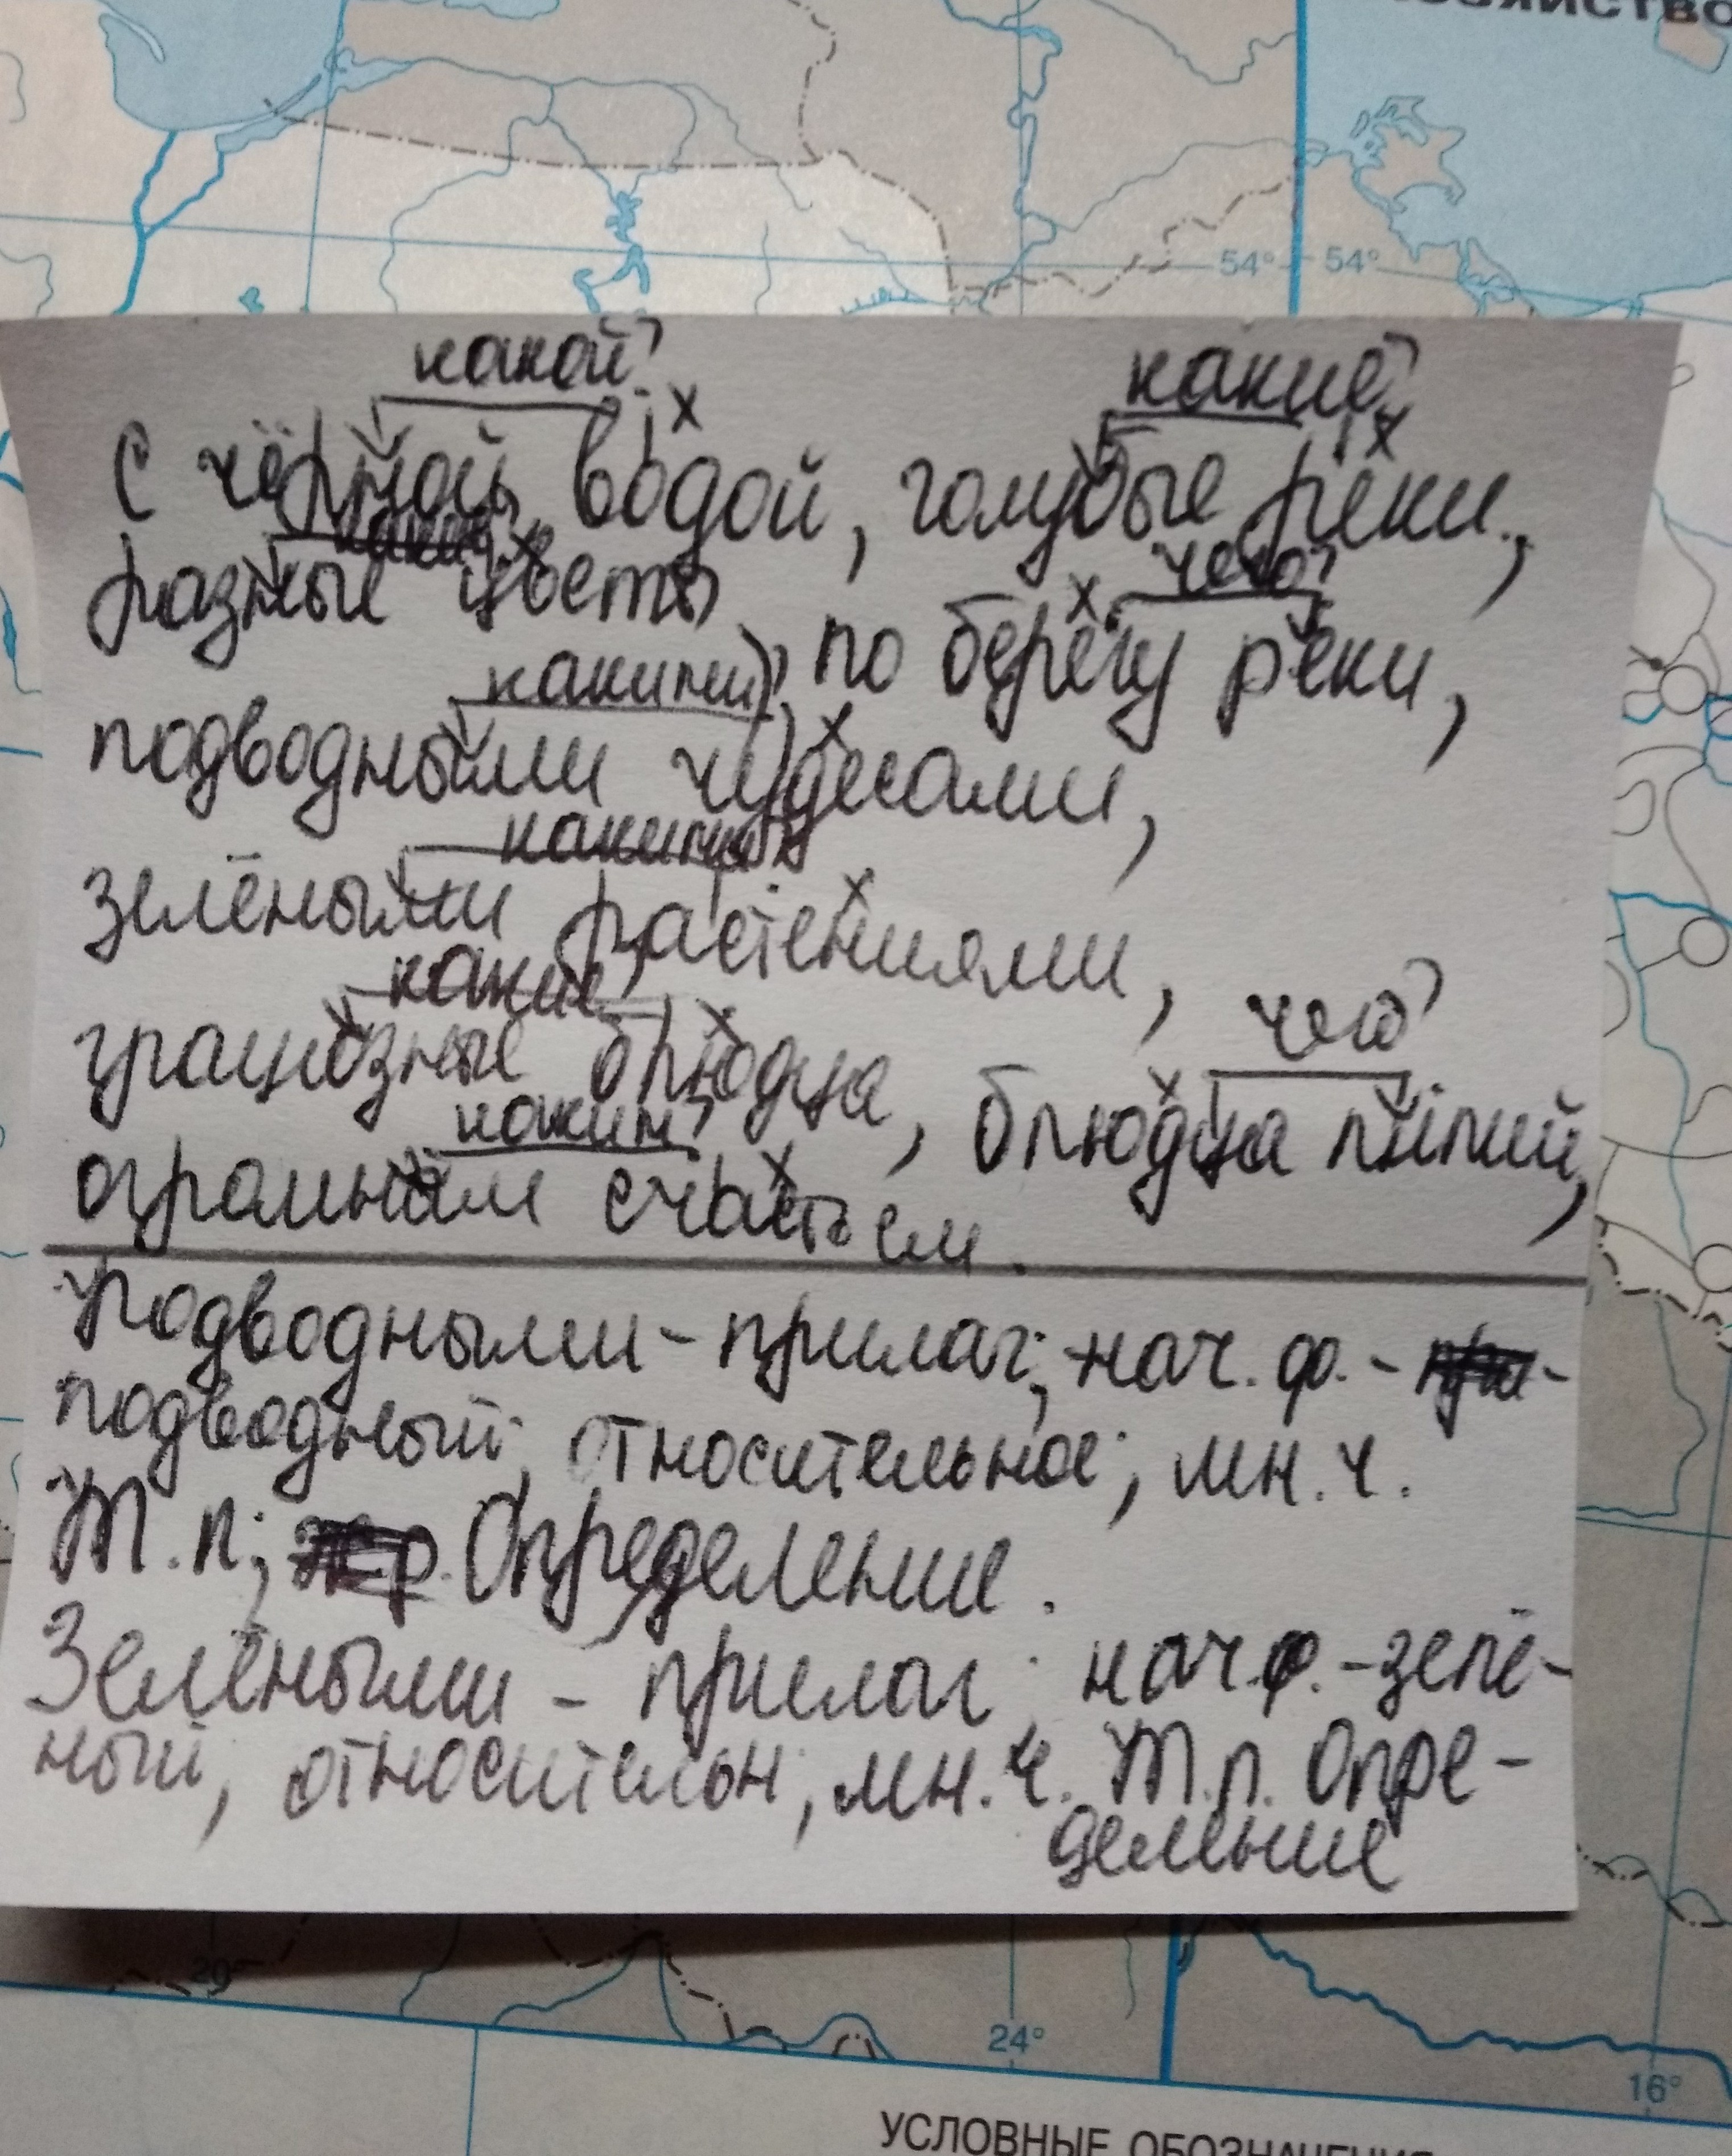 54° 54°
какой? какие?
с чёрной водой, голубые реки,
какие? чего?
разные цветы, по берегу реки,
какими?
подводными чудесами,
какими?
зелёными растениями,
какие? чего?
грациозные блюдца, блюдца лилий,
каким?
огромным счастьем.
Подводными - прилаг; нач. ф. -
подводный; относительное; мн. ч.
Т. п; Определение.
Зелёными - прилаг; нач.ф. - зелё-
ный, относительн, мн. ч. Т.п. Опре-
деление
20
24°
16°
УСЛОВНЫЕ ОБОЗНАЧЕНИЯ